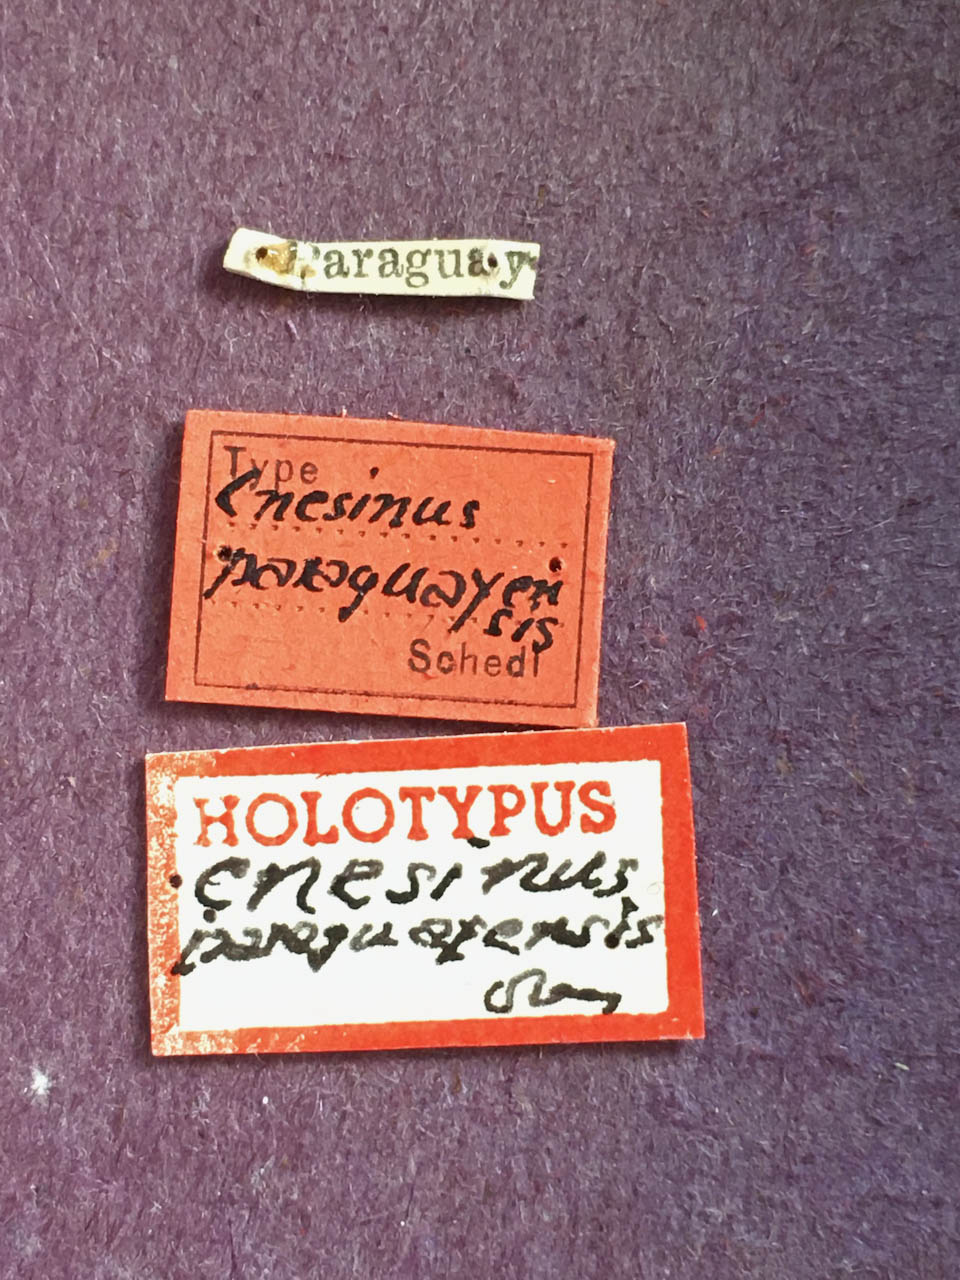 Paraguay
Type
Cnesinus
paraguayen
sis
Schedl
HOLOTYPUS
Cnesinus
paraguayensis